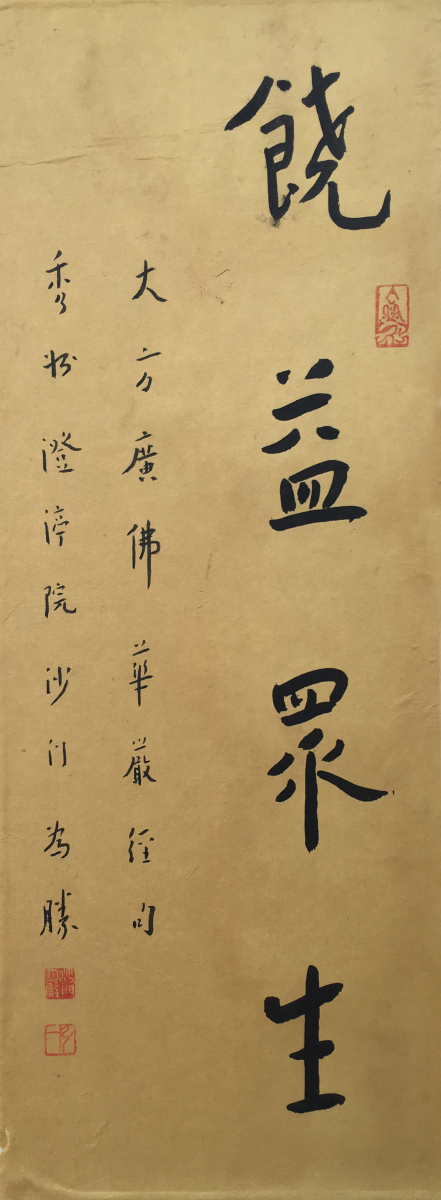 饒益眾生
大方廣佛華嚴經句
秀州澄渟院沙门為勝